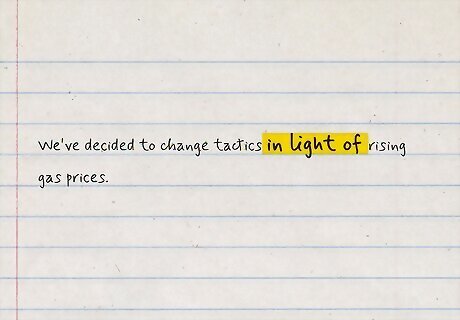 We've decided to change tactics in light of rising
gas prices.